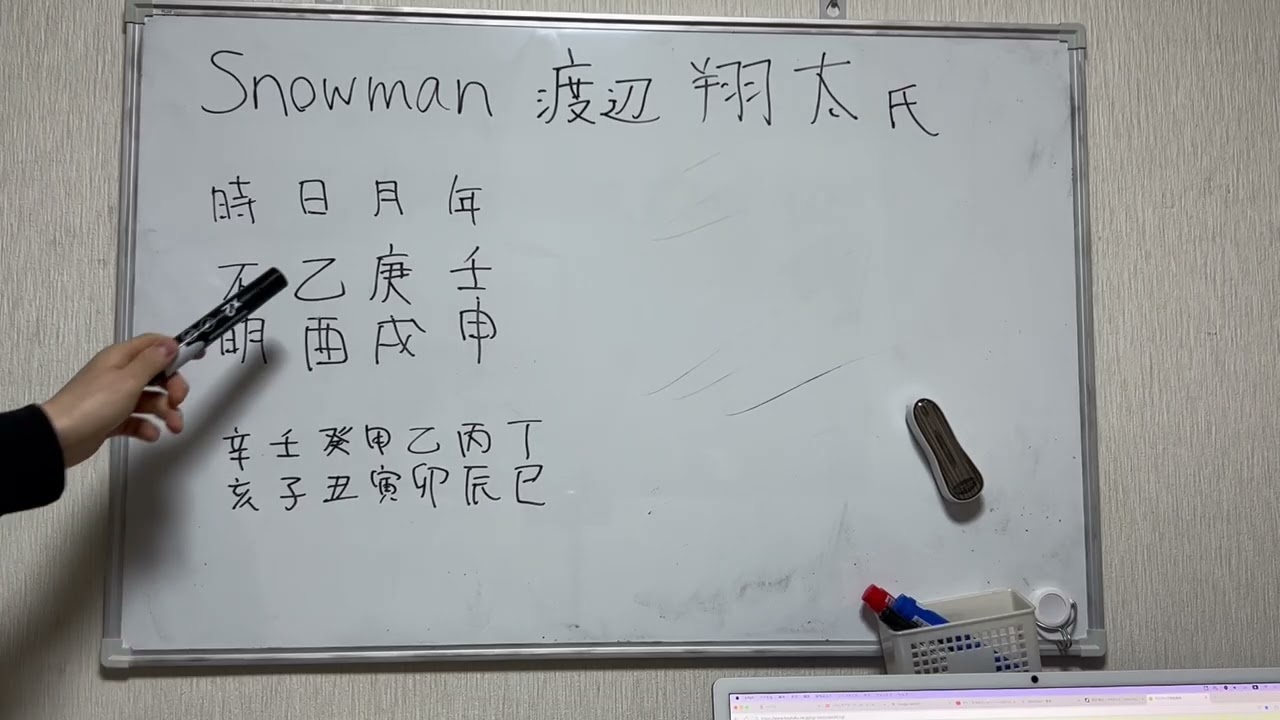 Snowman 渡辺 翔太氏
時 日 月 年
不 乙 庚 壬
明 酉 戌 申
辛 壬 癸 甲 乙 丙 丁
亥 子 丑 寅 卯 辰 巳